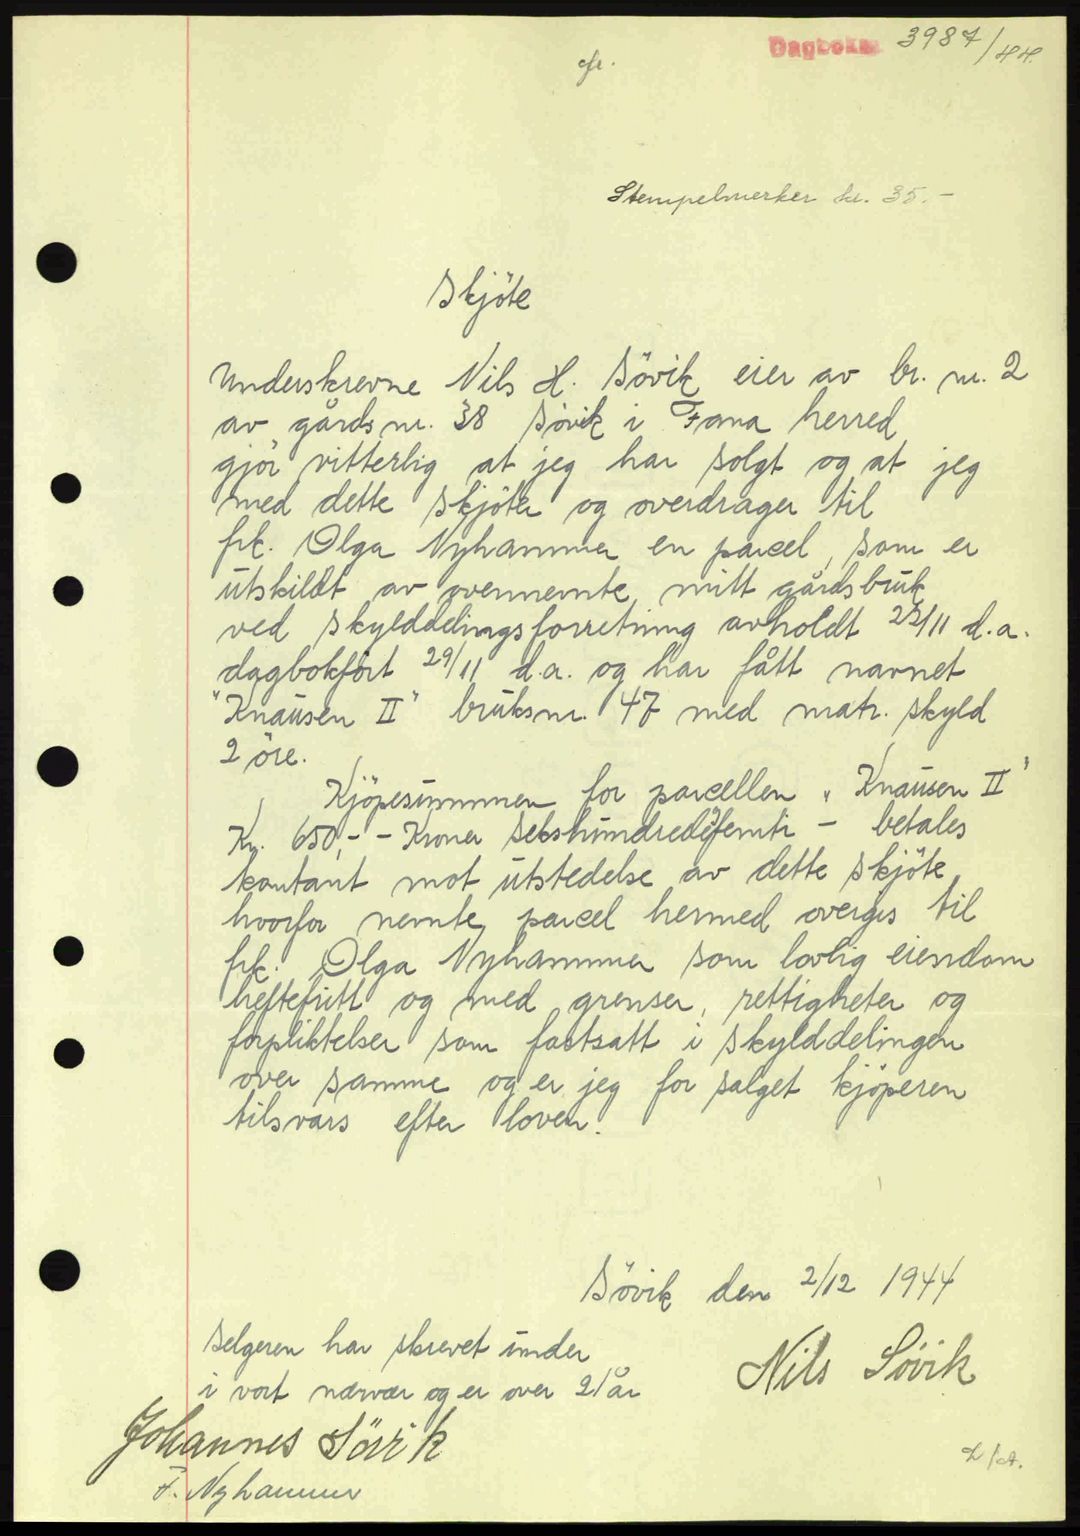 Dagboknr. 3987/44.
Stempelmerker kr. 35.-
Skjöte
Underskrevne Nils H. Sövik eier av br. nr. 2
av gårdsnr. 38 Sövik i Fana herred
gjör vitterlig at jeg har solgt og at jeg
med dette skjöter og overdrager til
frk. Olga Nyhammer en parcel, som er
utskildt av ovennemte mitt gårdsbruk
ved skylddelingsforretning avholdt 22/11 d.a.
dagbokfört 29/11 d.a. og har fått navnet
"Knausen II" bruksnr. 47 med matr. skyld
2 öre.
Kjöpesummen for parcellen "Knausen II"
Kr. 650,- - Kroner sekshundredeogfemti - betales
kontant mot utstedelse av dette skjöte
hvorfor nemte parcel hermed overgis til
frk. Olga Nyhammer som lovlig eiendom
heftefritt og med grenser, rettigheter og
forpliktelser som fastsatt i skylddelingen
over samme og er jeg for salget kjöperen
tilsvars efter loven.
Sövik den 2/12 1944
Nils Sövik
Selgeren har skrevet under
i vort nærvær og er over 21 år
Johannes Sövik
F. Nyhammer